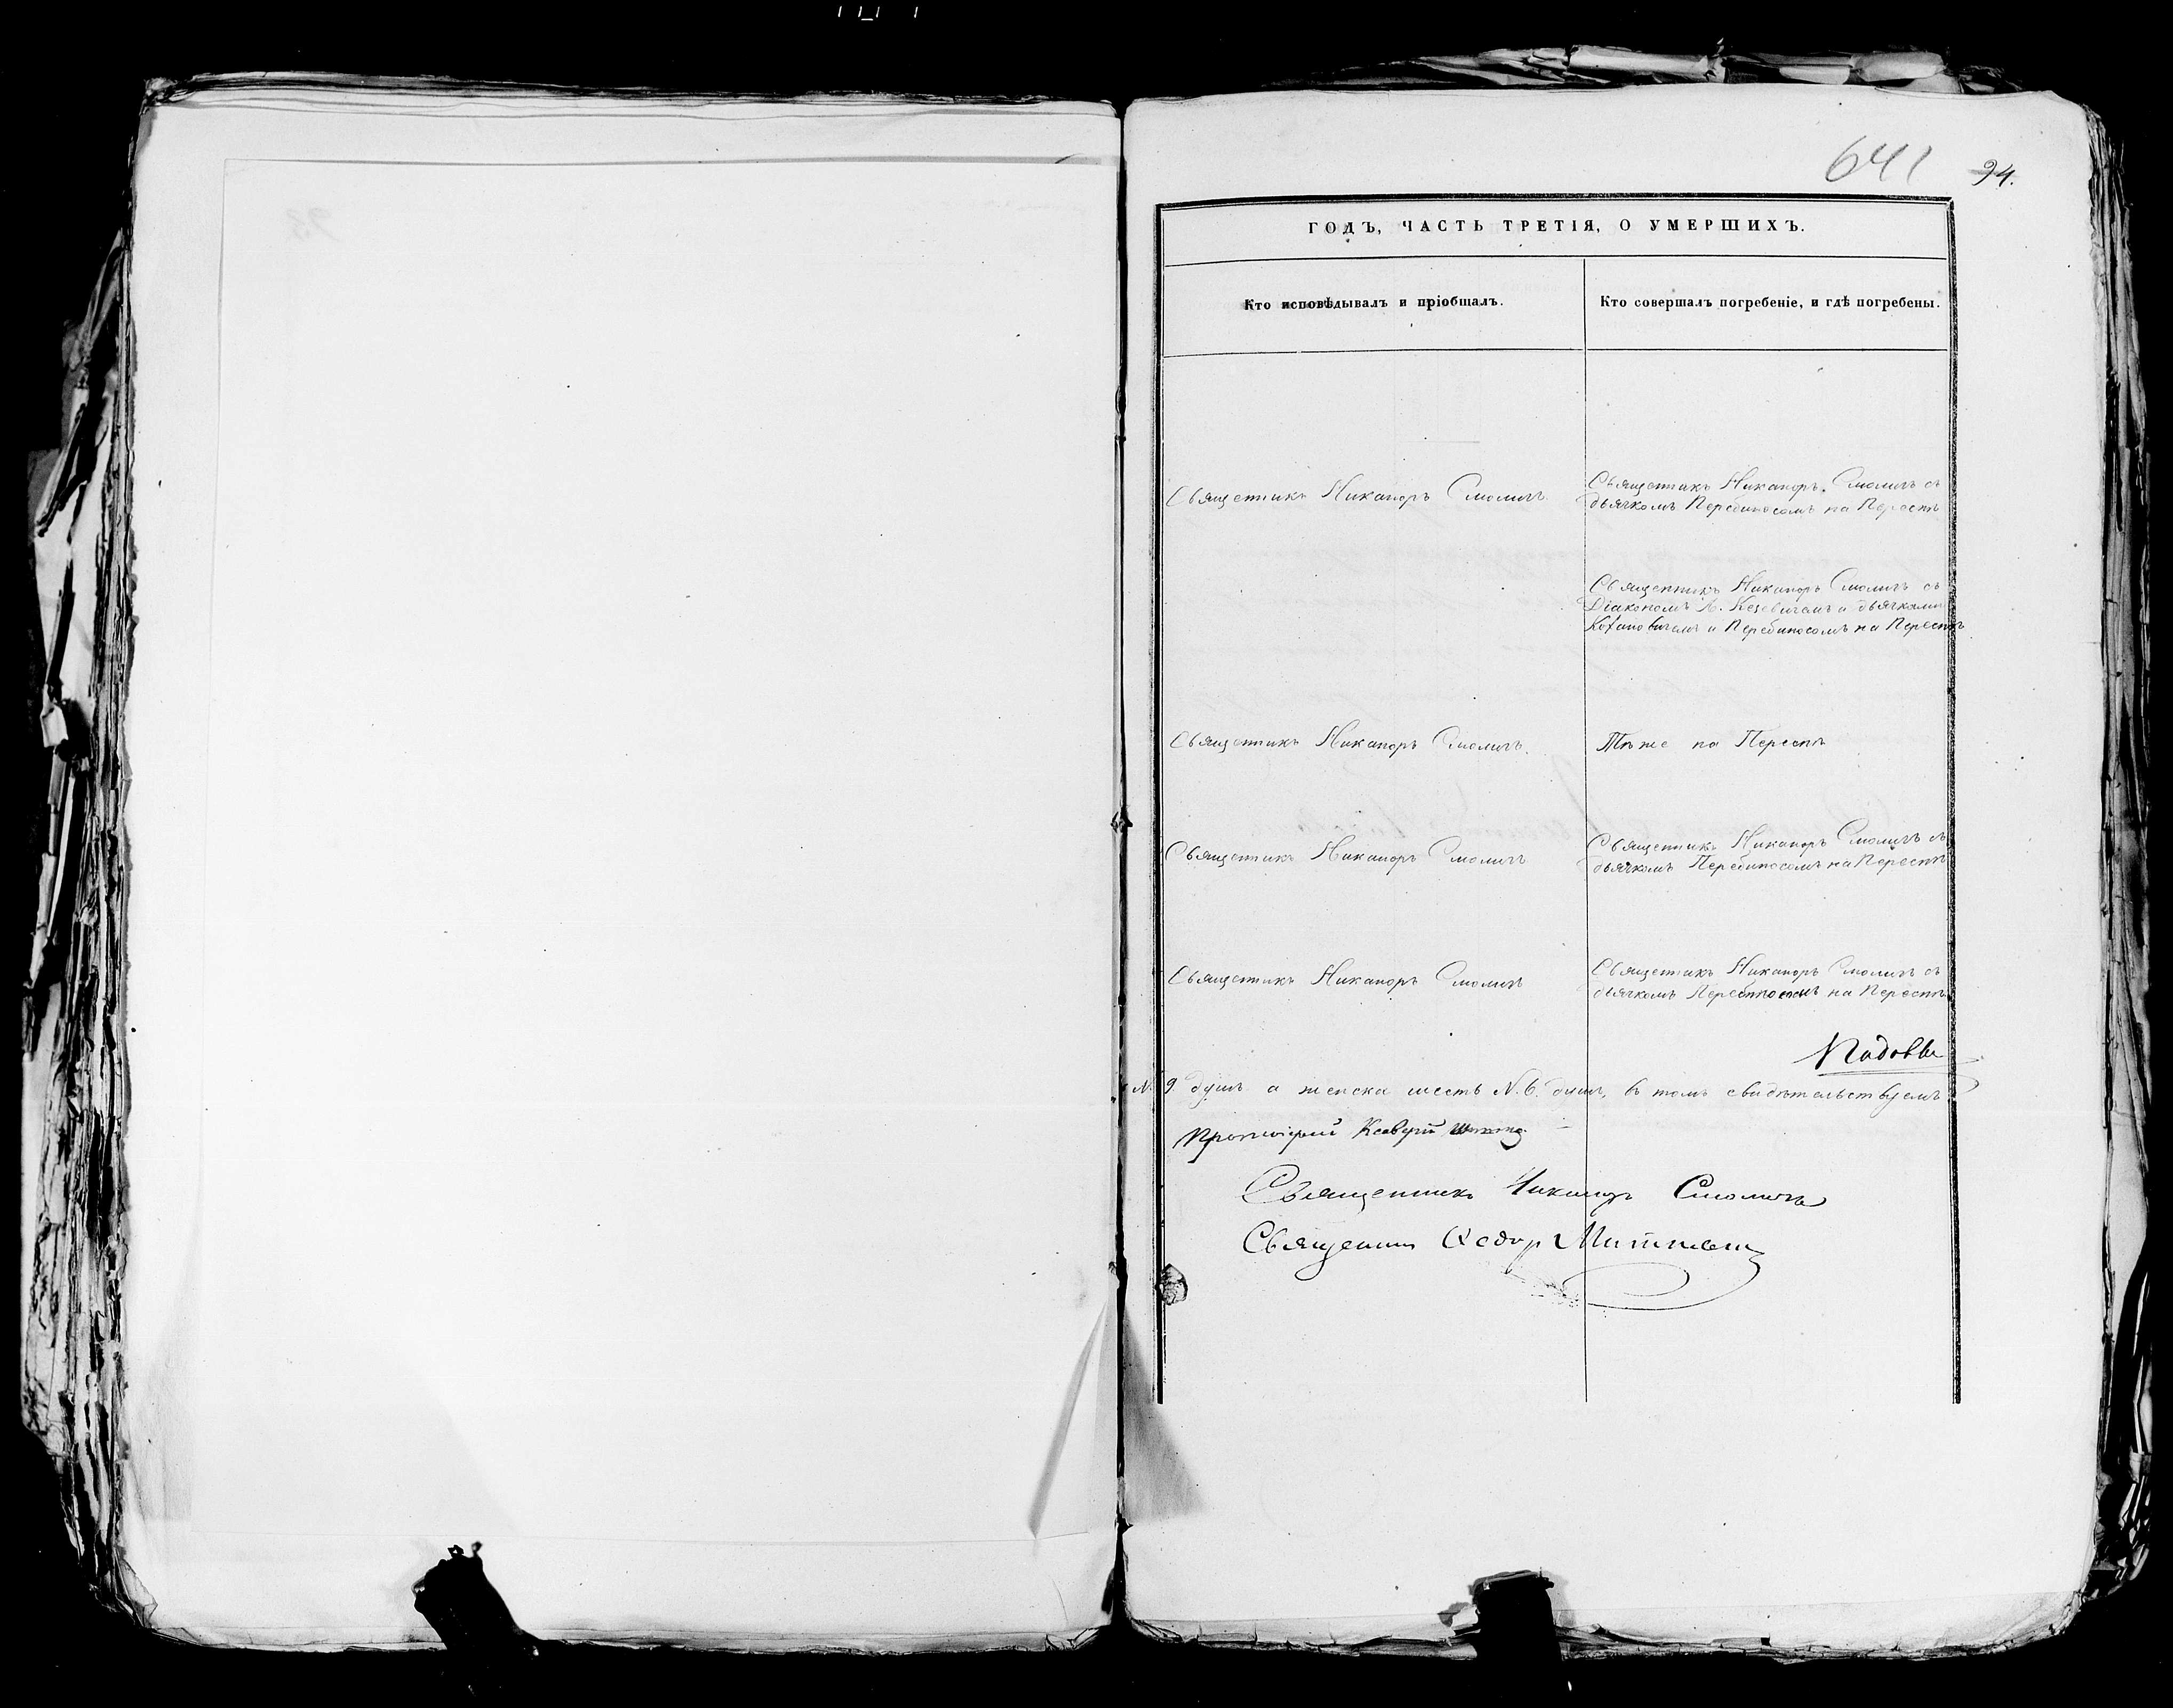 641 94.
ГОДЪ, ЧАСТЬ ТРЕТІЯ, О УМЕРШИХЪ.
Кто исповѣдывалъ и пріобщалъ.
Кто совершалъ погребеніе, и гдѣ погребены.
Священникъ Никаноръ Смоличъ
Священникъ Никаноръ Смоличъ съ
дьячкомъ Перебиносомъ на Переспѣ
Священникъ Никаноръ Смоличъ съ
Діакономъ и дьячками
и Перебиносомъ на Переспѣ
Священникъ Никаноръ Смоличъ.
Тѣже на Переспѣ
Священникъ Никаноръ Смоличъ
Священникъ Никаноръ Смоличъ съ
дьячкомъ Перебиносомъ на Переспѣ
Священникъ Никаноръ Смоличъ
Священникъ Никаноръ Смоличъ съ
дьячкомъ Перебиносомъ на Переспѣ
N. 9 душъ а женска шесть N. 6. душъ, въ томъ свидѣтельствуемъ
Протоіерей
Священникъ Никаноръ Смоличъ
Священникъ Ѳедор